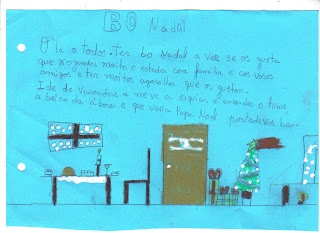 BO Nadal
Ola a todos. Ter bo Nadal a ver se os gusta
que xoguedes moito e estedes coa familia e cos vosos
amigos e ter moitos agasallos que os gusten.
Ide de vacacións a neve a esquiar e encender o fume
a beira da árbore e que veña Papa Noel portedevos ben.